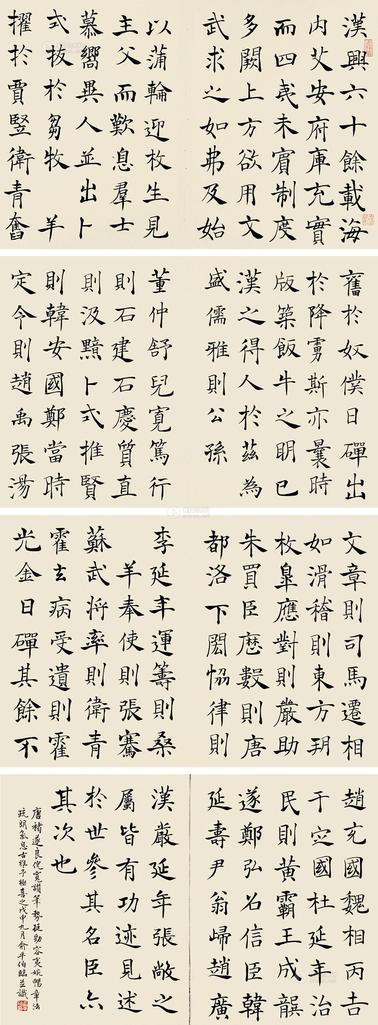 漢興六十餘載海
内艾安府庫充實
而四夷未賓制度
多闕上方欲用文
武求之如弗及始
以蒲輪迎枚生見
主父而歎息羣士
慕嚮異人並出卜
式拔於芻牧 羊
擢於賈豎衛青奮
舊於奴僕日磾出
於降虜斯亦曩時
版築飯牛之明已
漢之得人於茲為
盛儒雅則公孫
董仲舒兒寬篤行
則石建石慶質直
則汲黯卜式推賢
則韓安國鄭當時
定令則趙禹張湯
文章則司馬遷相
如滑稽則東方朔
枚臯應對則嚴助
朱買臣歷數則唐
都洛下閎恊律則
李延年運籌則桑
羊奉使則張騫
蘇武將率則衛青
霍去病受遺則霍
光金日磾其餘不
趙充國魏相丙吉
于定國杜延年治
民則黃霸王成龔
遂鄭弘召信臣韓
延壽尹翁歸趙廣
漢嚴延年張敞之
屬皆有功迹見述
於世參其名臣亦
其次也
唐褚遂良倪寬讚筆勢挺勁容夷婉暢章法
疏朗氣息古雅予極喜之戊申九月俞平伯臨並識